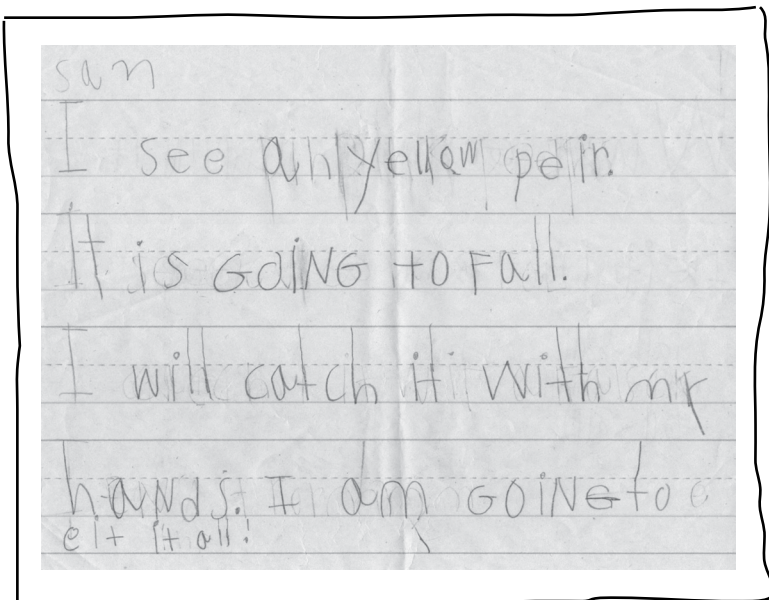 san
I see an yellow peir.
It is GOiNG to Fall.
I will catch it with my
haNds. I am GOiNG to
eit it all!